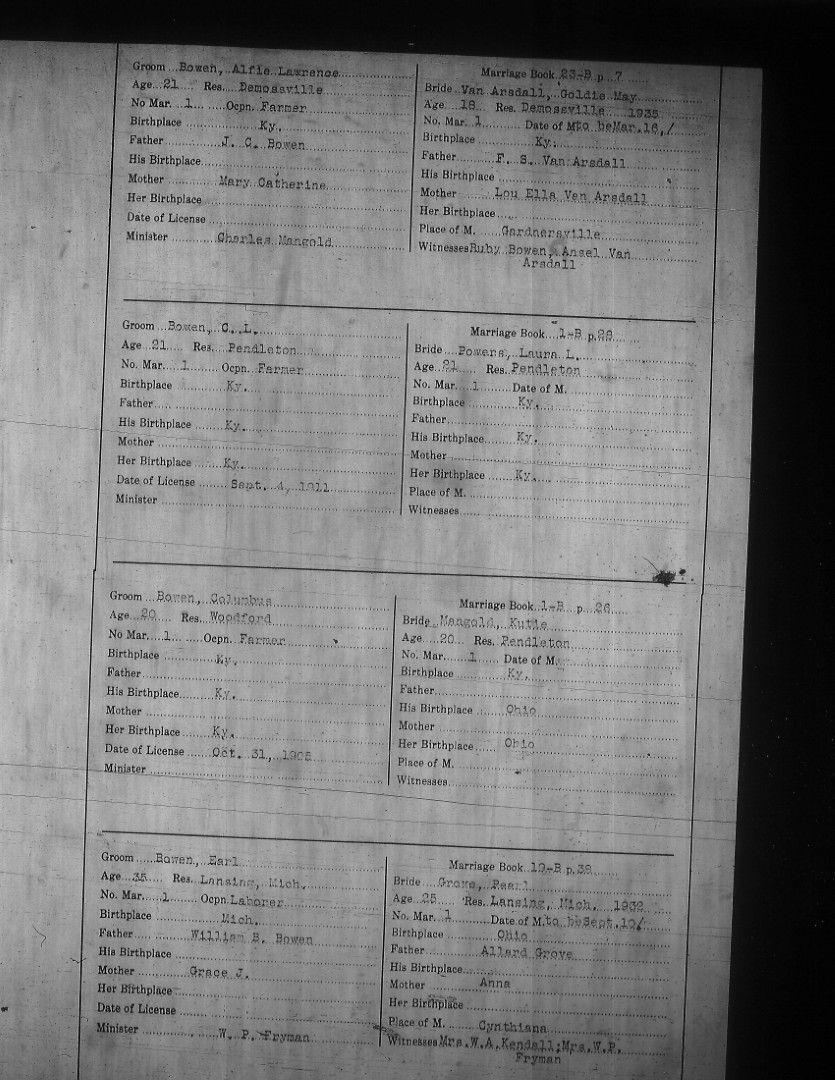 Groom Bowen, Alfie Lawrence
Age 21 Res. Demossville
No Mar. 1 Ocpn. Farmer
Birthplace Ky.
Father J. C. Bowen
His Birthplace
Mother Mary Catherine
Her Birthplace
Date of License
Minister Charles Mangold
Marriage Book 23-B p. 7
Bride Van Arsdall, Goldie May
Age 18 Res. Demossville 1935
No. Mar. 1 Date of M. to be Mar. 16, /
Birthplace Ky.
Father F. S. Van Arsdall
His Birthplace
Mother Lou Ella Van Arsdall
Her Birthplace
Place of M. Gardnersville
Witnesses Ruby Bowen, Ansel Van
Arsdall
Groom Bowen, C. L.
Age 21 Res. Pendleton
No. Mar. 1 Ocpn. Farmer
Birthplace Ky.
Father
His Birthplace Ky.
Mother
Her Birthplace Ky.
Date of License Sept. 4, 1911
Minister
Marriage Book 1-B p. 28
Bride Powers, Laura L.
Age 21 Res. Pendleton
No. Mar. 1 Date of M.
Birthplace Ky.
Father
His Birthplace Ky.
Mother
Her Birthplace Ky.
Place of M.
Witnesses
Groom Bowen, Columbus
Age 20 Res. Woodford
No Mar. 1 Ocpn. Farmer
Birthplace Ky.
Father
His Birthplace Ky.
Mother
Her Birthplace Ky.
Date of License Oct. 31, 1905
Minister
Marriage Book 1-B p. 26
Bride Mangold, Kutie
Age 20 Res. Pendleton
No. Mar. 1 Date of M.
Birthplace Ky.
Father
His Birthplace Ohio
Mother
Her Birthplace Ohio
Place of M.
Witnesses
Groom Bowen, Earl
Age 35 Res. Lansing, Mich.
No. Mar. 1 Ocpn. Laborer
Birthplace Mich.
Father William B. Bowen
His Birthplace
Mother Grace J.
Her Birthplace
Date of License
Minister W. P. Fryman
Marriage Book 19-B p. 38
Bride Grove, Pearl
Age 25 Res. Lansing, Mich. 1932
No. Mar. 1 Date of M. to be Sept. 10/
Birthplace Ohio
Father Allard Grove
His Birthplace
Mother Anna
Her Birthplace
Place of M. Cynthiana
Witnesses Mrs. W.A. Kendall; Mrs. W.P.
Fryman